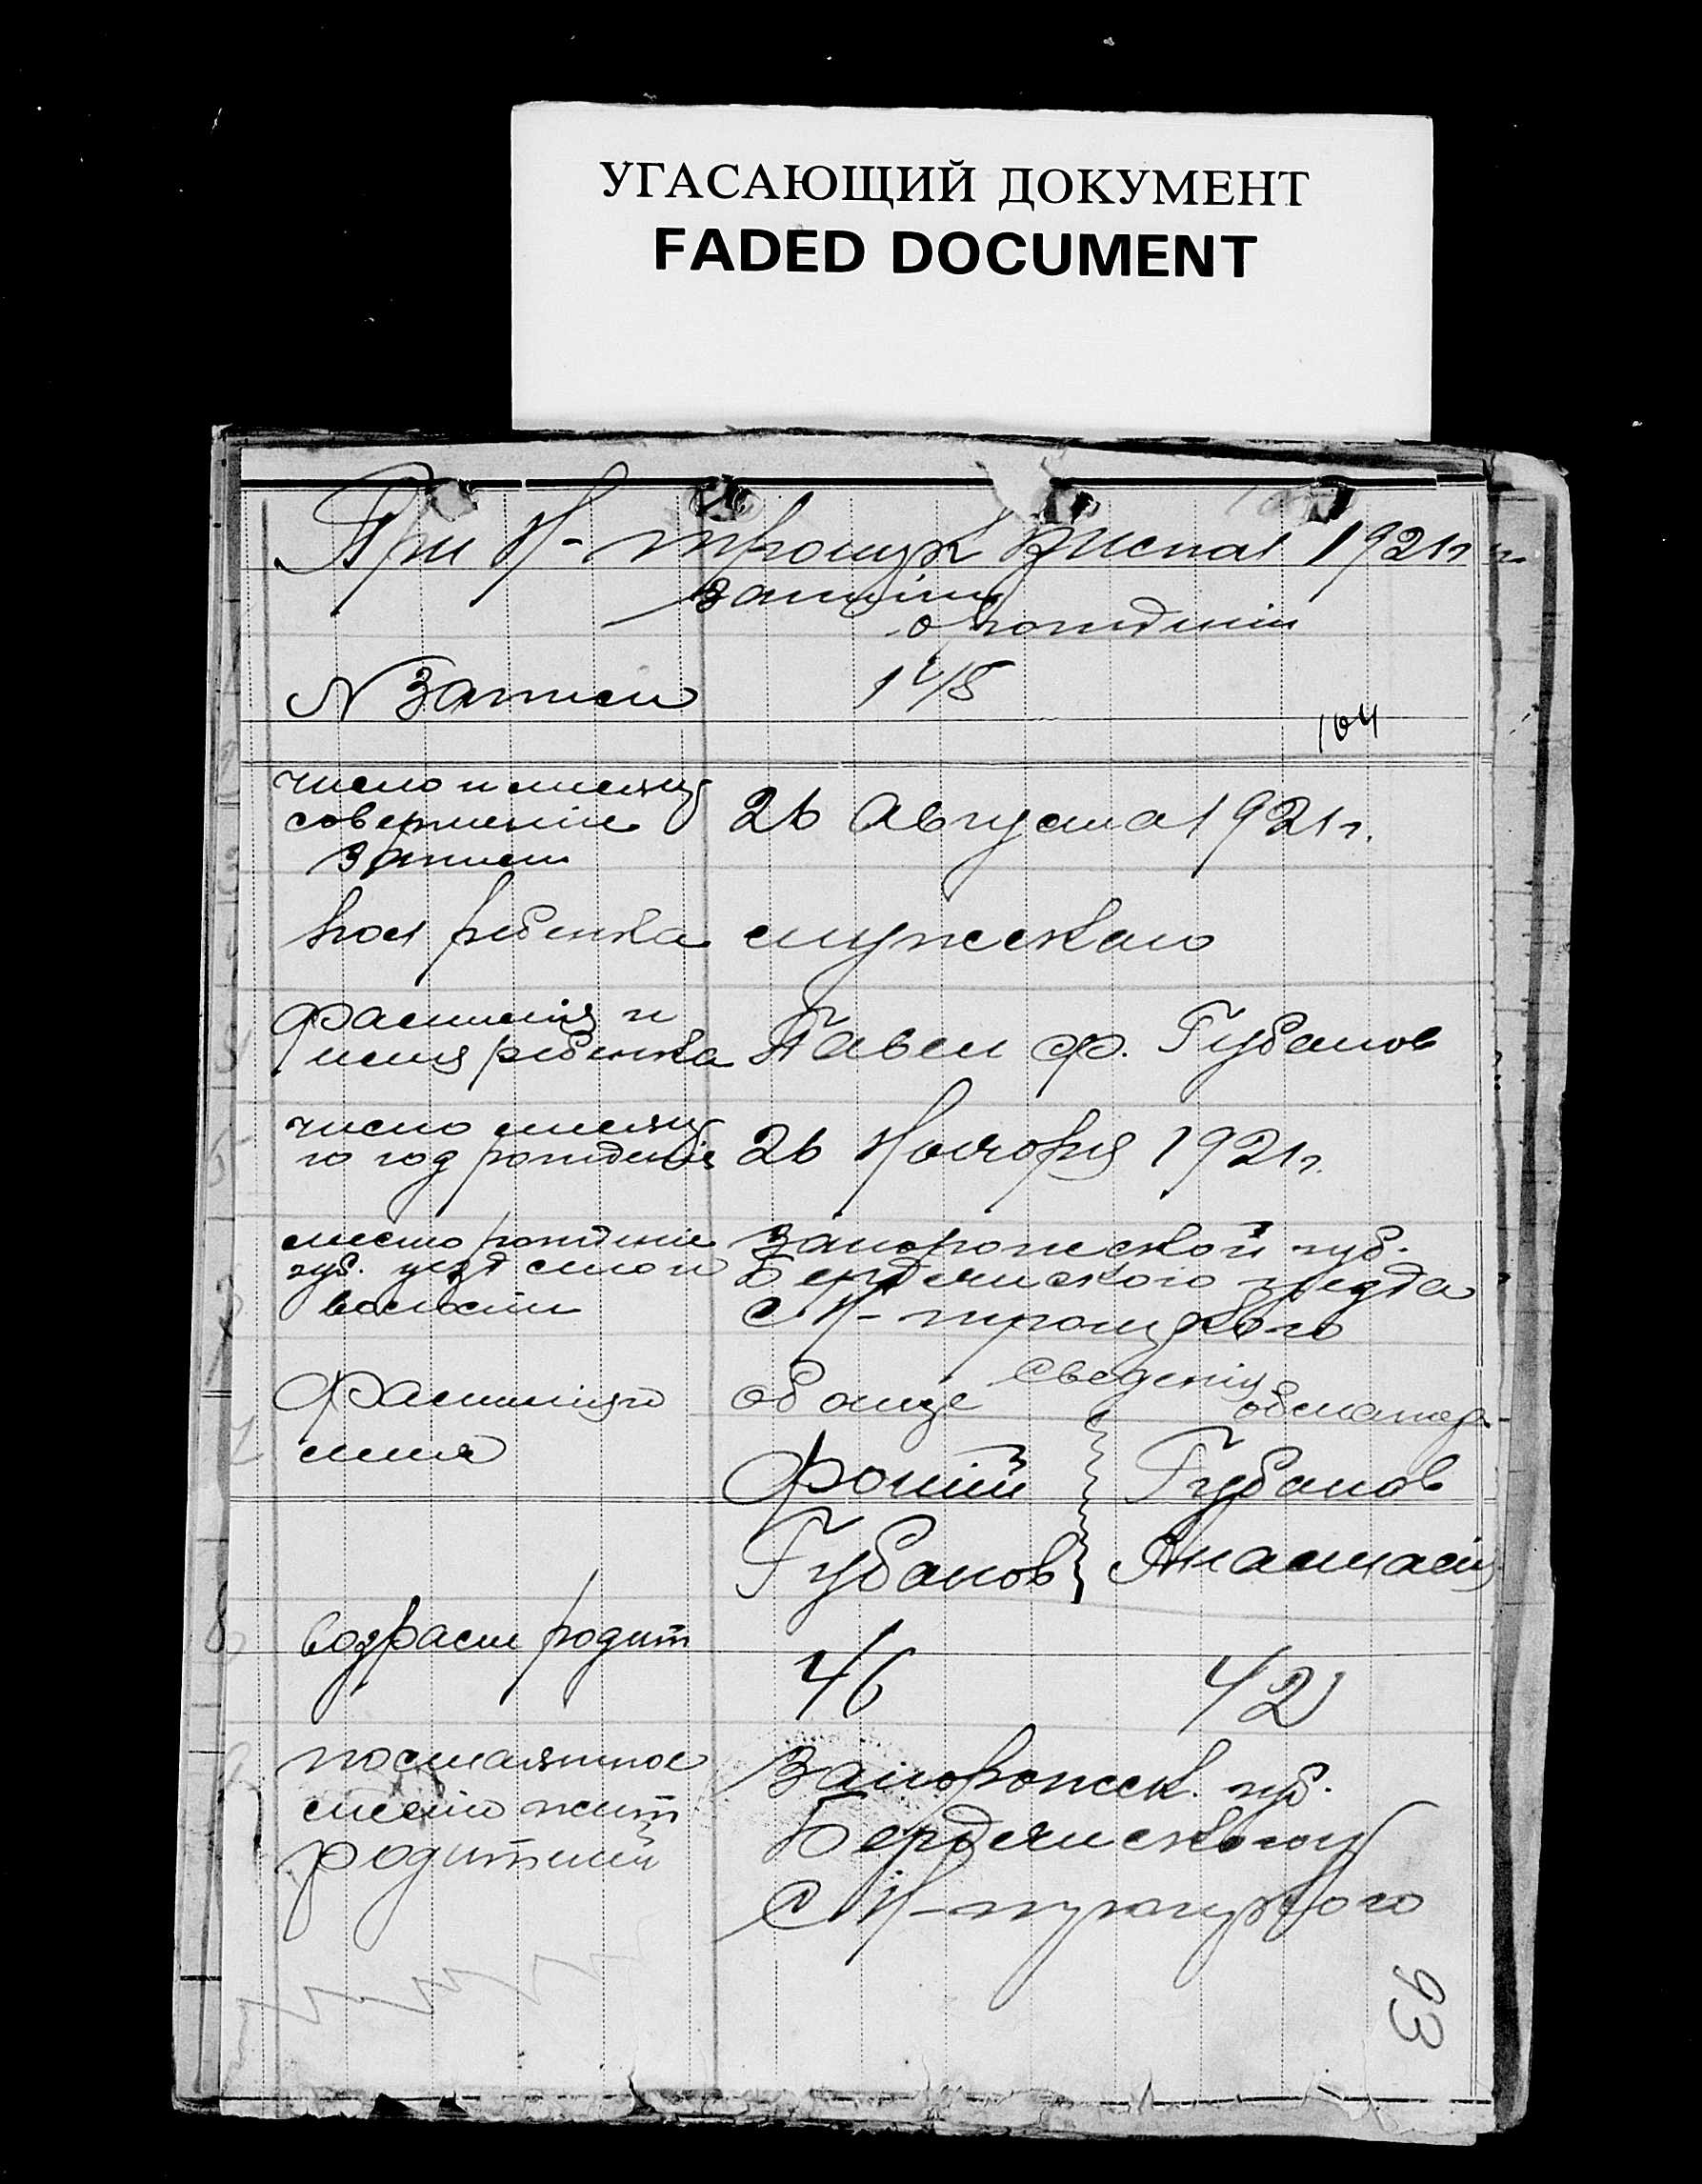 УГАСАЮЩИЙ ДОКУМЕНТ
FADED DOCUMENT
При Н-троицк 1921г
о рождении
N Записи
104
число и месяц
совершение
записи
26 Августа 1921г.
пол ребенка мужскаго
Фамилия и
имя ребенка
Павел ф. Губанов
число месяц
го год рождения
26 Ноября 1921г.
место рождение
губ. уезд село и
волости
Запорожской губ.
Бердянского уезда
с Н-троицкого
Фамилия и
имя
об отце
сведения
об матер.
Фотий
Губанов
Губанов
Анастасия
возраст родит
46
42
постаянное
место жит
родителей
Запорожск. губ.
Бердянского у
с Н-троицкого
93